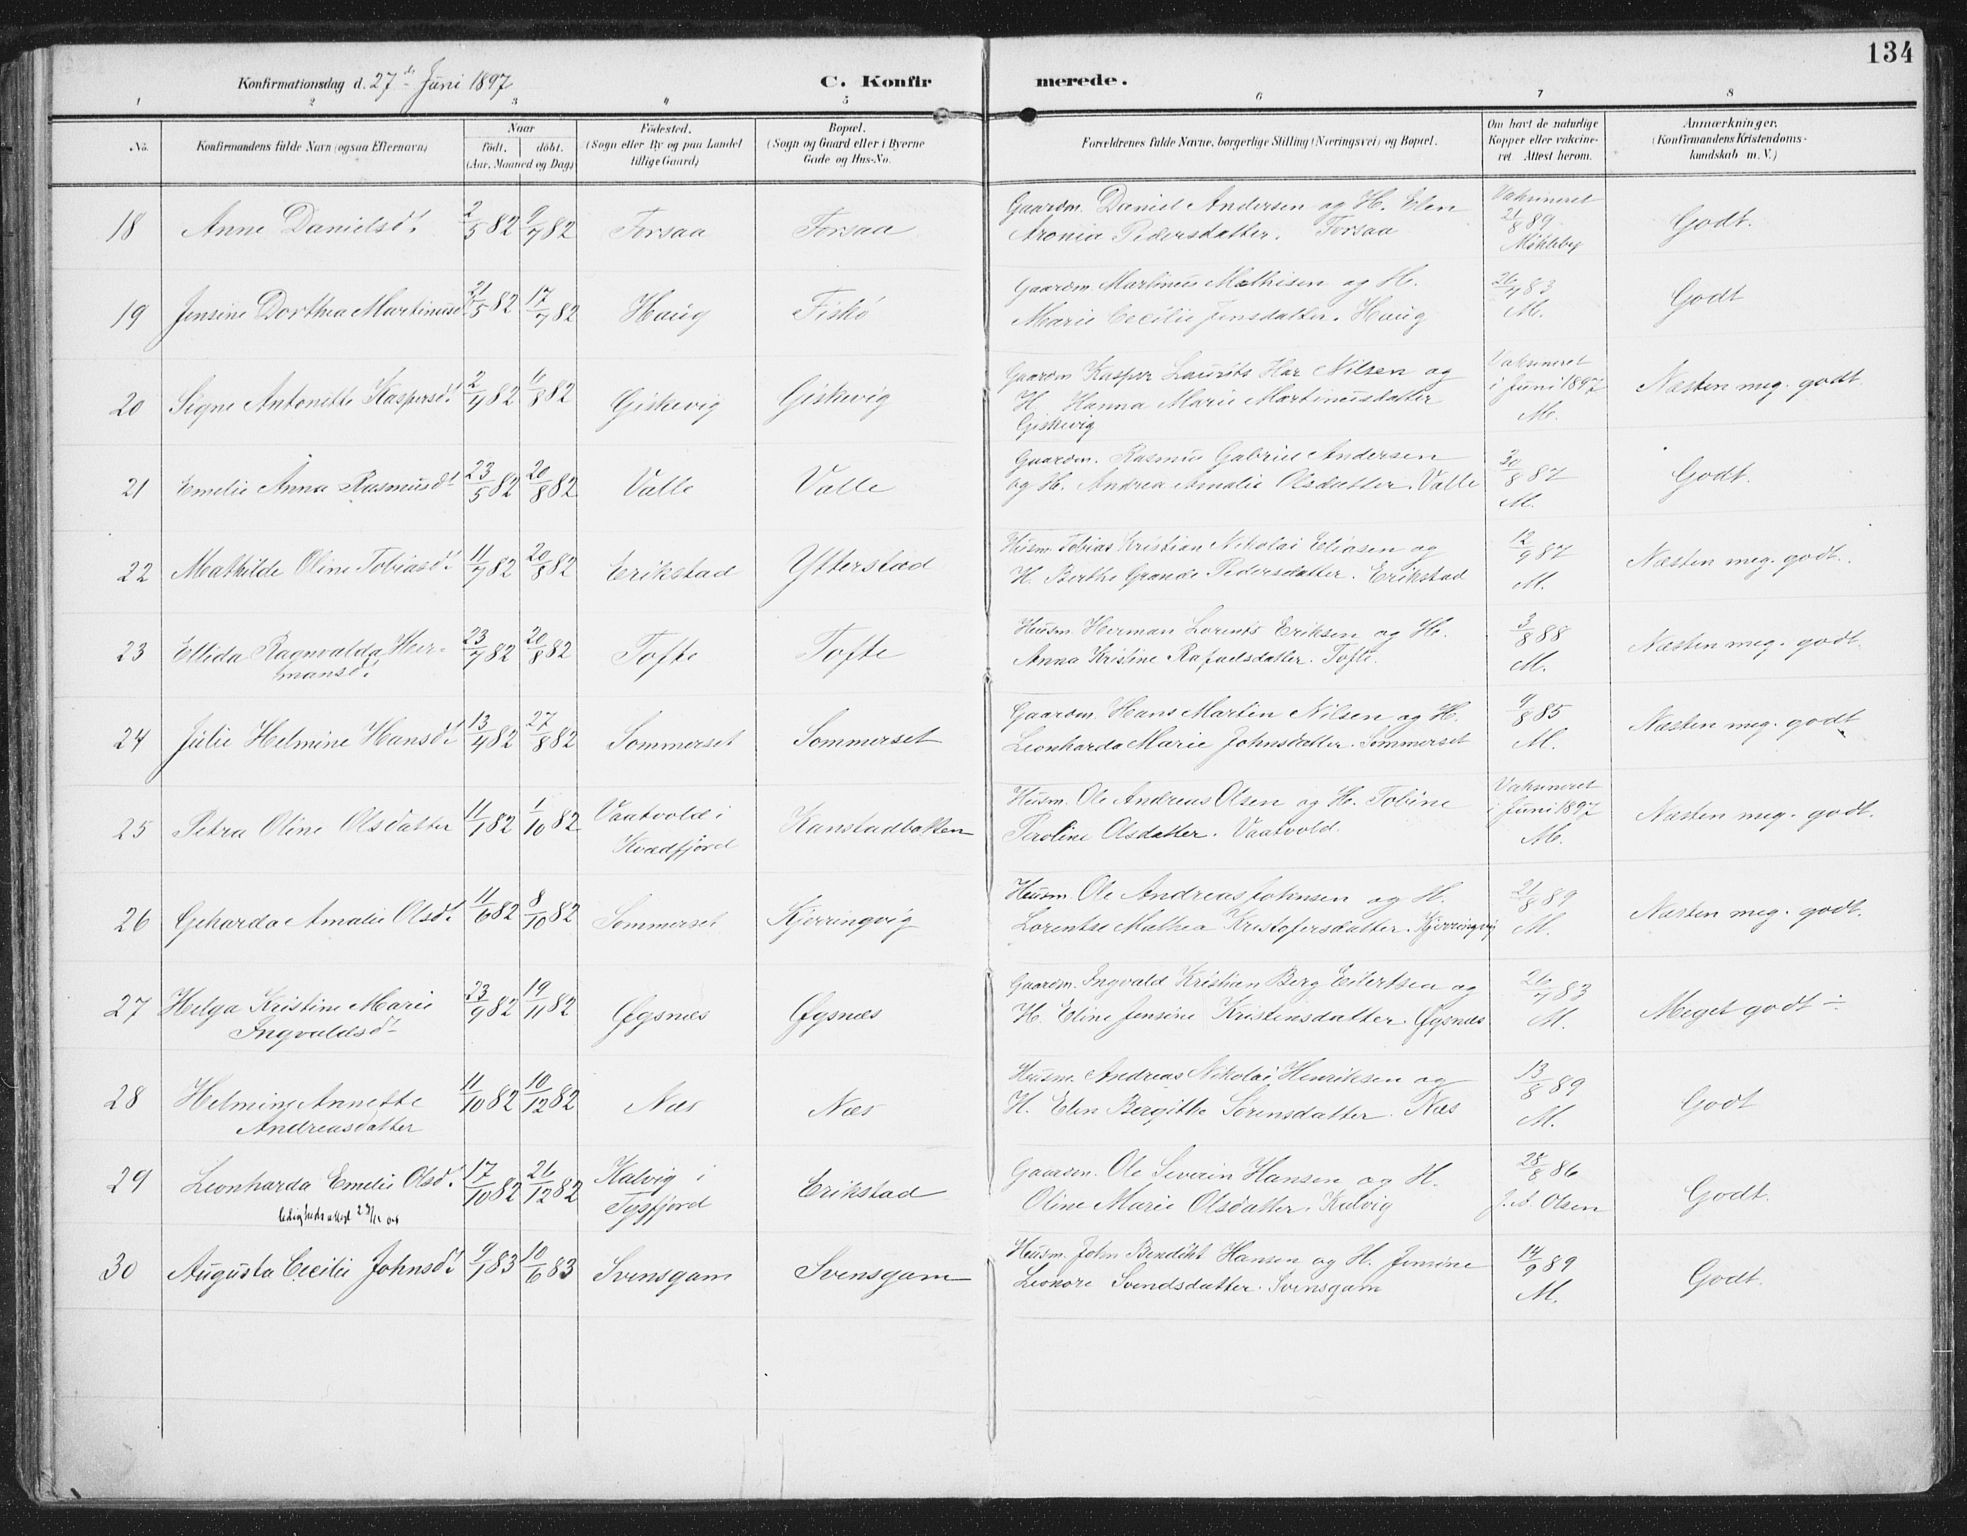 134
Konfirmationsdag d. 27de Juni 1897
C. Konfirmerede.
1 2 3 4 5 6 7 8
No.
Konfirmandens fulde Navn (ogsaa Efternavn)
Naar
födt. döbt.
(Aar, Maaned og Dag)
Födested.
(Sogn eller By og paa Landet
tillige Gaard)
Bopæl.
(Sogn og Gaard eller i Byerne
Gade og Hus-No.
Forældrenes fulde Navne, borgerlige Stilling (Næringsvei) og Bopæl.
Om havt de naturlige
Kopper eller vakcine-
ret. Attest herom.
Anmærkninger.
(Konfirmandens Kristendoms-
kundskab m. V.)
18 Anne Danielsdt. 2/5 82 9/7 82 Forsaa Forsaa Gaardm. Daniel Andersen og H. Elen
Aronia Pedersdatter. Forsaa
Vaksineret
21/8 89
Möklebg
Godt.
19 Jensine Dorthea Martinusd 21/5 82 17/7 82 Haug Fiskö Gaardm. Martinus Mathisen og H.
Marie Cecilie Jensdatter. Haug
26/7 83
M.
Godt
20 Signe Antonette Kaspersdt. 2/7 82 6/8 82 Giskevig Giskevig Gaardm Kasper Laurits Har Nilsen og
H. Hanna Marie Martinusdatter
Giskevig
Vaksineret
i Juni 1897
M.
Næsten meg. godt.
21 Emelie Anna Rasmusdt 23/5 82 20/8 82 Valle Valle Gaardm. Rasmus Gabriel Andersen
og H. Andrea Amalie Olsdatter. Valle
30/8 87
M.
Godt.
22 Mathilde Oline Tobiasdt. 11/7 82 20/8 82 Erikstad Ytterstad Husm. Tobias Kristian Nikolai Eliasen og
H. Berthe Grande Pedersdatter. Erikstad
12/9 87
M.
Næsten meg. godt.
23 Ellida Ragnvalda Her-
mansdt. 23/7 82 20/8 82 Tofte Tofte Husm. Herman Lorents Eriksen og H.
Anna Kristine Rafaelsdatter. Tofte.
3/8 88
M.
Næsten meg. godt.
24 Julie Helmine Hansdt. 13/7 82 27/8 82 Sommerset Sommerset Gaardm. Hans Martin Nilsen og H.
Leonharda Marie Johnsdatter. Sommerset
9/8 85
M.
Næsten meg. godt
25 Petra Oline Olsdatter 11/1 82 1/10 82 Vaatvold i
Kvædfjord Kanstadbotten Husm. Ole Andreas Olsen og H. Tobine
Peroline Olsdatter. Vaatvold.
Vaksineret
i Juni 1897
M.
Næsten meg. godt.
26 Geharda Amalie Olsdt. 11/6 82 8/10 82 Sommerset Kjerringvig Husm. Ole Andreas Johnsen og H.
Lorentse Mathea Kristofersdatter. Kjerringvig
21/8 89
M.
Næsten meg. godt.
27 Helga Kristine Marie
Ingvaldsdt 23/9 82 19/11 82 Øgsnæs Øgsnæs Gaardm. Ingvald Kristian Berg Eilertsen og
H. Eline Jensine Kristensdatter. Øgsnæs
26/7 83
M.
Meget godt ÷
28 Helmine Annette
Andreasdatter 11/10 82 10/12 82 Næs Næs Husm. Andreas Nikolai Henriksen og
H. Elen Bergithe Sørensdatter. Næs
13/8 89
M.
Godt
29 Leonharda Emelie Olsdt. 17/10 82 26/12 82 Kalvig i
Tysfjord Erikstad Gaardm. Ole Severin Hansen og H.
Oline Marie Olsdatter. Kalvig
28/8 86
J. A. Olsen
Godt.
30 Augusta Cecilie Johnsdt. 9/1 83 10/6 83 Svensgam Svensgam Husm. John Bendikt Hansen og H. Jensine
Leonore Svendsdatter. Svensgam
14/9 89
M.
Godt.